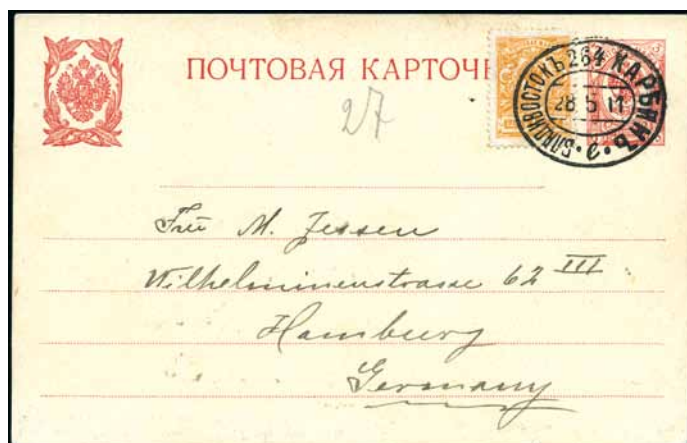 ПОЧТОВАЯ КАРТОЧ
27
ВЛАДИВОСТОКЪ 264 ХАРБИНЪ
28 5 11
M. Jessen
Wilhelminenstrasse 62 III
Hamburg
Germany